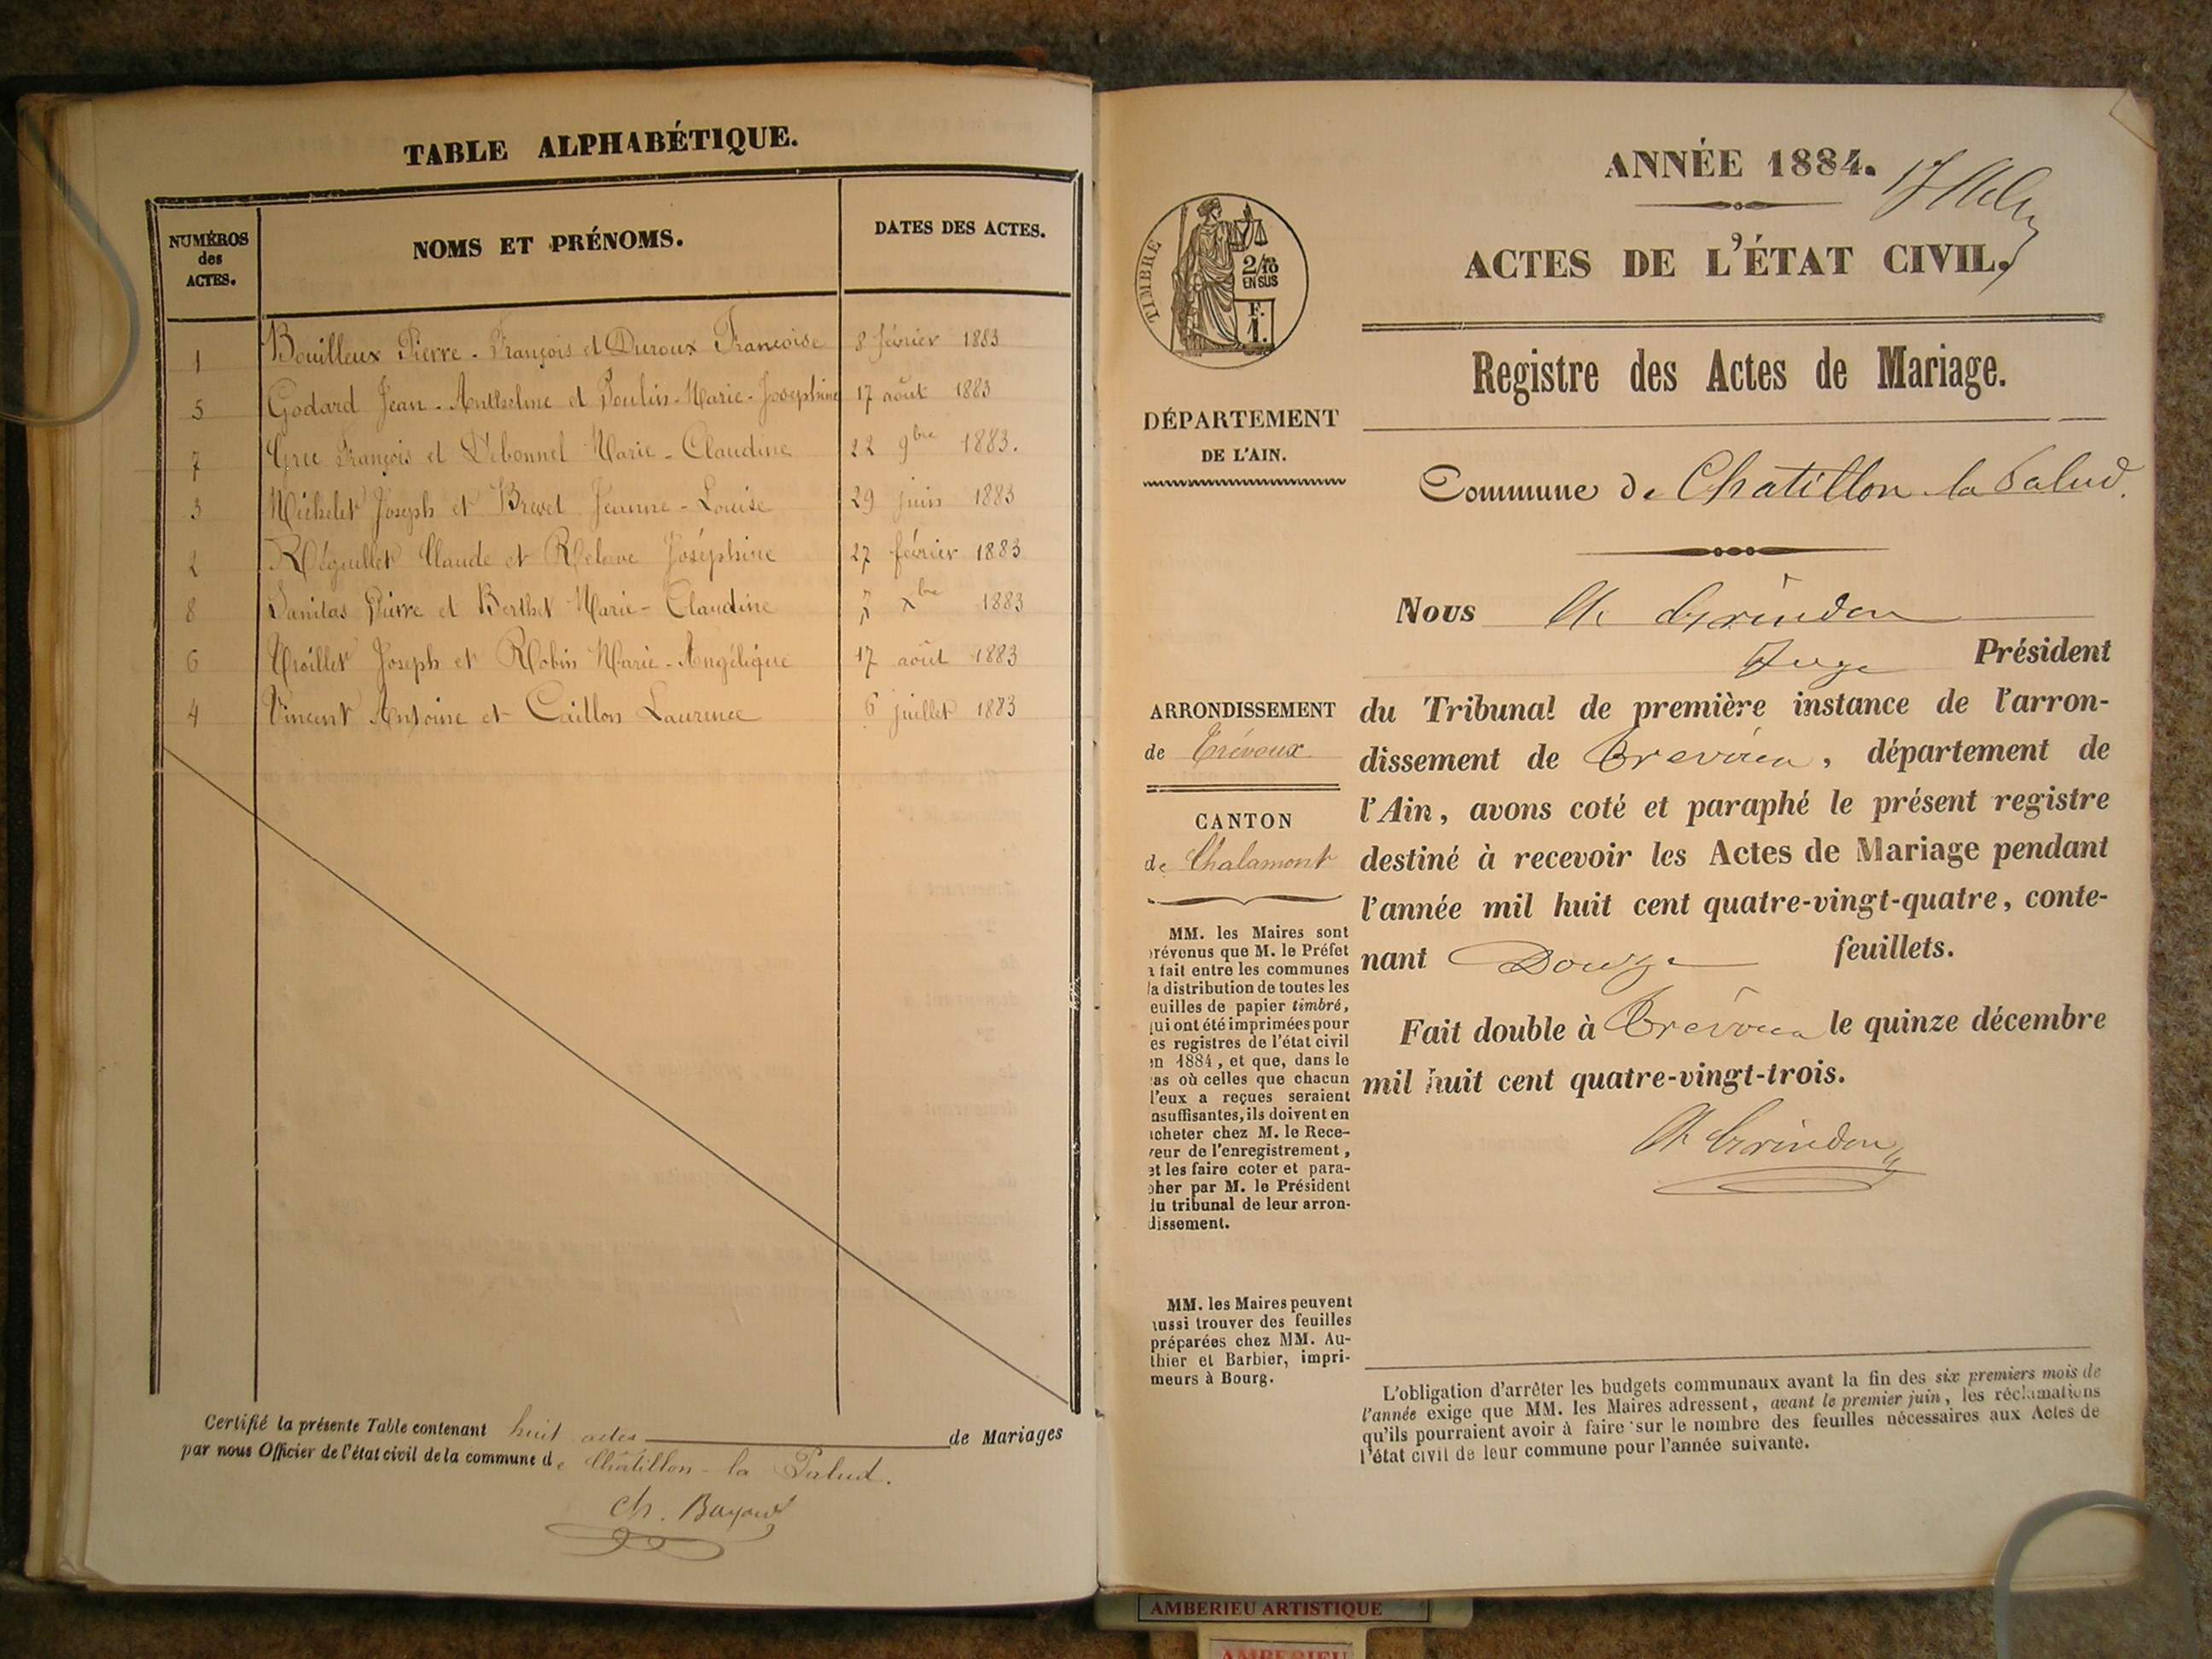 TABLE ALPHABÉTIQUE.
NUMÉROS des ACTES.
NOMS ET PRÉNOMS.
DATES DES ACTES.
1 Bouilleux Pierre-François et Duroux Françoise 8 février 1883
5 Godard Jean-Anthelme et Poulin-Marie-Josephine 17 août 1883
7 François et Debonnel Marie-Claudine 22 9bre 1883.
3 Michelet Joseph et Brevet Jeanne-Louise 29 juin 1883
2 Réguillet Claude et Joséphine 27 février 1883
8 Sanitas Pierre et Berthet Marie-Claudine xbre 1883
6 Joseph et Robin Marie-Angélique 17 août 1883
4 Vincent Antoine et Caillon Laurence 6 juillet 1883
Certifié la présente Table contenant huit actes de Mariages
par nous Officier de l'état civil de la commune de Châtillon-la Palud.
Ch. Bayard
ANNÉE 1884.
ACTES DE L'ÉTAT CIVIL.
TIMBRE
2/10 EN SUS
F. 1.
Registre des Actes de Mariage.
DÉPARTEMENT
DE L'AIN.
Commune de Chatillon la Palud.
Nous Ch Grindon
Juge Président
ARRONDISSEMENT
de Trévoux
CANTON
de Chalamont
du Tribunal de première instance de l'arron-
dissement de Trevoux, département de
l'Ain, avons coté et paraphé le présent registre
destiné à recevoir les Actes de Mariage pendant
l'année mil huit cent quatre-vingt-quatre, conte-
nant Douze feuillets.
Fait double à Trévoux le quinze décembre
mil huit cent quatre-vingt-trois.
Ch Grindon
MM. les Maires sont
révenus que M. le Préfet
a fait entre les communes
la distribution de toutes les
euilles de papier timbré,
qui ont été imprimées pour
es registres de l'état civil
en 1884, et que, dans le
cas où celles que chacun
d'eux a reçues seraient
nsuffisantes, ils doivent en
acheter chez M. le Rece-
veur de l'enregistrement,
et les faire coter et para-
pher par M. le Président
du tribunal de leur arron-
dissement.
MM. les Maires peuvent
aussi trouver des feuilles
préparées chez MM. Au-
thier et Barbier, impri-
meurs à Bourg.
L'obligation d'arrêter les budgets communaux avant la fin des six premiers mois de
l'année exige que MM. les Maires adressent, avant le premier juin, les réclamations
qu'ils pourraient avoir à faire sur le nombre des feuilles nécessaires aux Actes de
l'état civil de leur commune pour l'année suivante.
AMBERIEU ARTISTIQUE
AMBERIEU